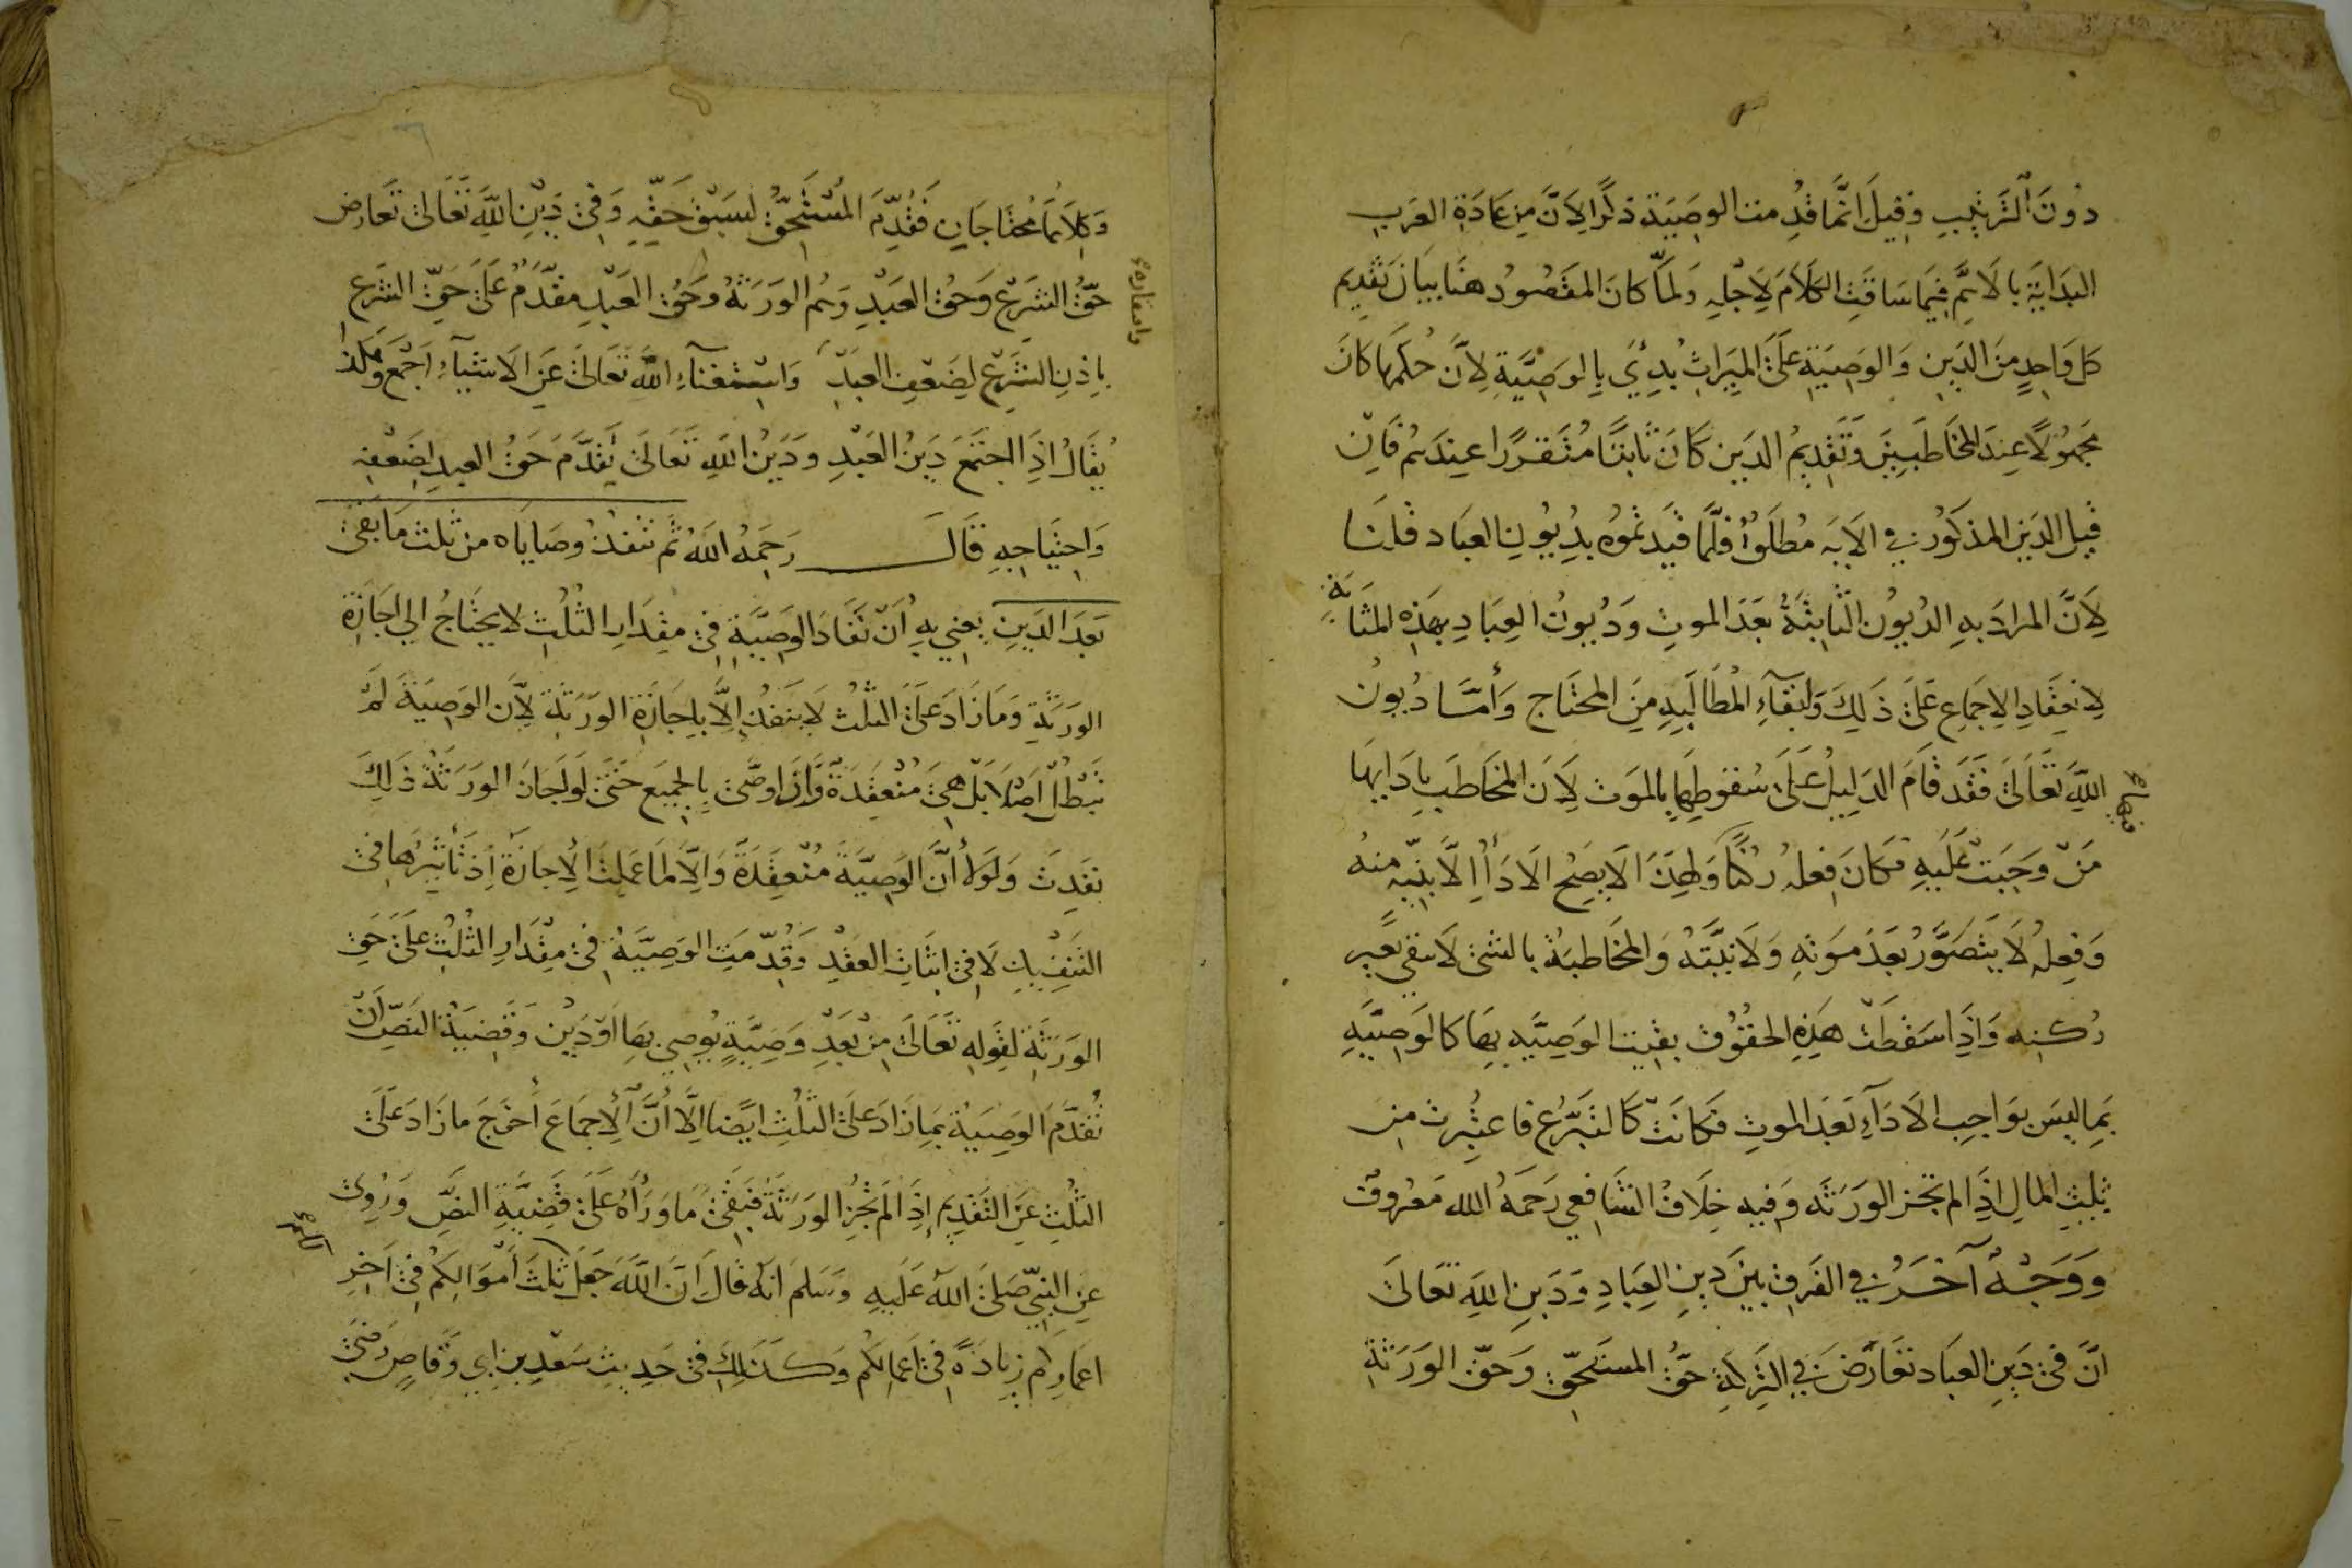 دُونَ التَّرتِيبِ وَقِيلَ اِنَّمَا قُدِّمت الوصِيَة ذكرًا لاَنَّ مِن عَادَةِ العَربِ
البَدَايَةَ بالاَهَمِّ فِيمَا سَاقَتِ الكَلَامَ لاَجلِهِ وَلَمَّا كَانَ المَقصُودُ هنَا بَيَان تَقدِيم
كلّ وَاحِدٍ مِنَ الدَين وَالوَصِيَةِ عَلىَ المِيَراثِ بُدِئَ بالوَصِيَّةِ لاَنَّ حُكمَهَا كَانَ
مَجهُولًا عِندَ المخَاطَبِينَ وَتَقدِيمُ الدَين كَانَ ثَابتًا مُتَقرِّرًا عِندَهُم فَاِن
قِيلَ الدَين المذكُور فِي الاَيَة مُطلَق فَلِمَ قَيَدتمُوهُ بدُيُونِ العبَاد قلنَا
لاَنَّ المرادَ بهِ الديُون الثَابتَةُ بَعدَ الموتِ وَدُيُونُ العِبَادِ بهَذِه المثَابَةِ
لانعِقَادِ الاجمَاعِ عَلىَ ذَلِكَ وَلبَقَآءِ المُطَالَبَةِ مِنَ المحتَاج وَأمَّا دُيُونُ
اللهِ تَعَالىَ فقَد قَامَ الدَلِيلُ عَلىَ سُقُوطِهَا بالمَوت لاَنَ المخَاطَبَ بادَائِهَا
مَنْ وَجَبَتْ عَلَيهِ فكَانَ فِعلهُ رُكنًا وَلِهَذَا لاَ يَصِحُ الادَآءُ اِلاَّ بنِيَّةٍ مِنهُ
وَفِعلهُ لاَ يَتَصَوَّرُ بَعدَ مَوتِهِ وَلاَ نِيَّتهُ وَالمخَاطَبَةُ بالشئ لاَ تبقى بغَير
رُكنِهِ وَاِذَا سَقَطَتْ هَذِهِ الحقُوُق بقِيَت الوَصِيَّة بهَا كَالوَصِيَّةِ
بمَا ليسَ بوَاجِب الاَدَآءِ بَعدَ الموتِ فكَانَتْ كَالتَبَرُّعِ فاعتُبِرت مِن
ثُلثِ المَالِ اِذَا لم تجز الوَرَثَة وَفِيهِ خِلَافُ الشَافِعِي رَحِمَهُ الله مَعرُوف
وَوَجْهٌ آخَرُ فِي الفَرقِ بَينَ دَينِ العِبَادِ وَدَينِ اللهِ تَعَالىَ
اَنَّ فِى دَينِ العِبَاد تعَارَضَ فِي التَركةِ حَقُّ المستَحِقّ وَحَقّ الوَرَثَةِ
منهاج
وَكِلاَهُمَا مُحتَاجَانِ فقُدِّمَ المُستَحِقُّ لسَبْق حَقِّهِ وَفِى دَيْنِ اللهِ تَعَالىَ تَعَارَض
حَقُّ الشَرْعِ وَحَقُ العَبْدِ وَهُم الوَرَثَةُ وَحَقُ العَبْدِ مقدَّمٌ عَلىَ حَقِّ الشَرْعِ
باِذنِ الشَرْعِ لِضَعفِ العَبدِ وَاسْتِغنَآءِ اللهِ تعَالىَ عَنِ الاَشيَآءِ اَجْمَعَ وَهَكَذا
يُقَالُ اِذَا اجتَمَعَ دَينُ العَبْدِ وَدَيْنُ اللهِ تَعَالىَ يُقَدَّم حَقُ العبدِ لِضَعْفِهِ
وَاحتِيَاجِهِ قَالَ رَحِمَهُ اللهُ ثمّ تنفذُ وصَايَاه من ثلث مَا بَقىَ
بَعدَ الدَينِ يَعنِي بهِ أنَّ نفَاذَ الوَصِيَّةِ فِى مِقدَارِ الثُلثِ لا يَحتَاجُ الي اجَازَةِ
الوَرَثَةِ وَمَا زَادَ عَلىَ الثلُث لاَ ينفذُ اِلاَّ باِجَازَةِ الوَرَثَةِ لاَنّ الوَصِيَةَ لَم
تبْطُلْ اَصْلاً بَلْ هِىَ مُنْعَقِدَةٌ وَاِن اوصَىَ بالجمِيعِ حَتىَ لَو اَجَازَ الوَرَثَةُ ذَلِكَ
نفذت وَلَولاَ أنَّ الوَصِيَّةَ مُنْعَقِدَةٌ وَاِلاَّ لمَا عَمِلَت الاِجَازَةُ اِذ تَأثِيرُهَا فى
التَنفِيذِ لاَ فِى اثبَاتِ العَقْدِ وَقُدِّمَتِ الوَصِيَّةُ فِى مِقْدَارِ الثُلثِ عَلىَ حَقِ
الوَرَثَةِ لقَولِهِ تَعَالىَ مِنْ بَعْدِ وَصِيَّةٍ يُوصِي بهَا اَوْ دَيْن وَقَضِيَة النَصِّ اَنْ
تُقَدَّمَ الوَصِيَةُ بمَا زَادَ عَلىَ الثُلثِ ايضًا اِلاَّ أنَّ الاِجمَاعَ أخرَجَ ما زَادَ عَلىَ
الثُلثِ عَنِ التَقدِيم إذَا لم تُجِزِ الوَرَثَةُ فَبَقِىَ مَا وَرَآءَهُ عَلىَ قَضِيَّةِ النَصِّ وَرُوِيَ
عَنِ النَبِيّ صَلىَ اللهُ عَلَيهِ وَسَلم اَنَهُ قَالَ اِنَّ اللهَ جَعَلَ ثُلثَ أمْوَالِكمُ فِى آخِرِ
اعمَارِكم زِيَادَةً فِى اعمَالِكُم وَكَذَلِكَ فى حَدِيثِ سَعْدِ بن ابي وَقاصٍ رَضىَ